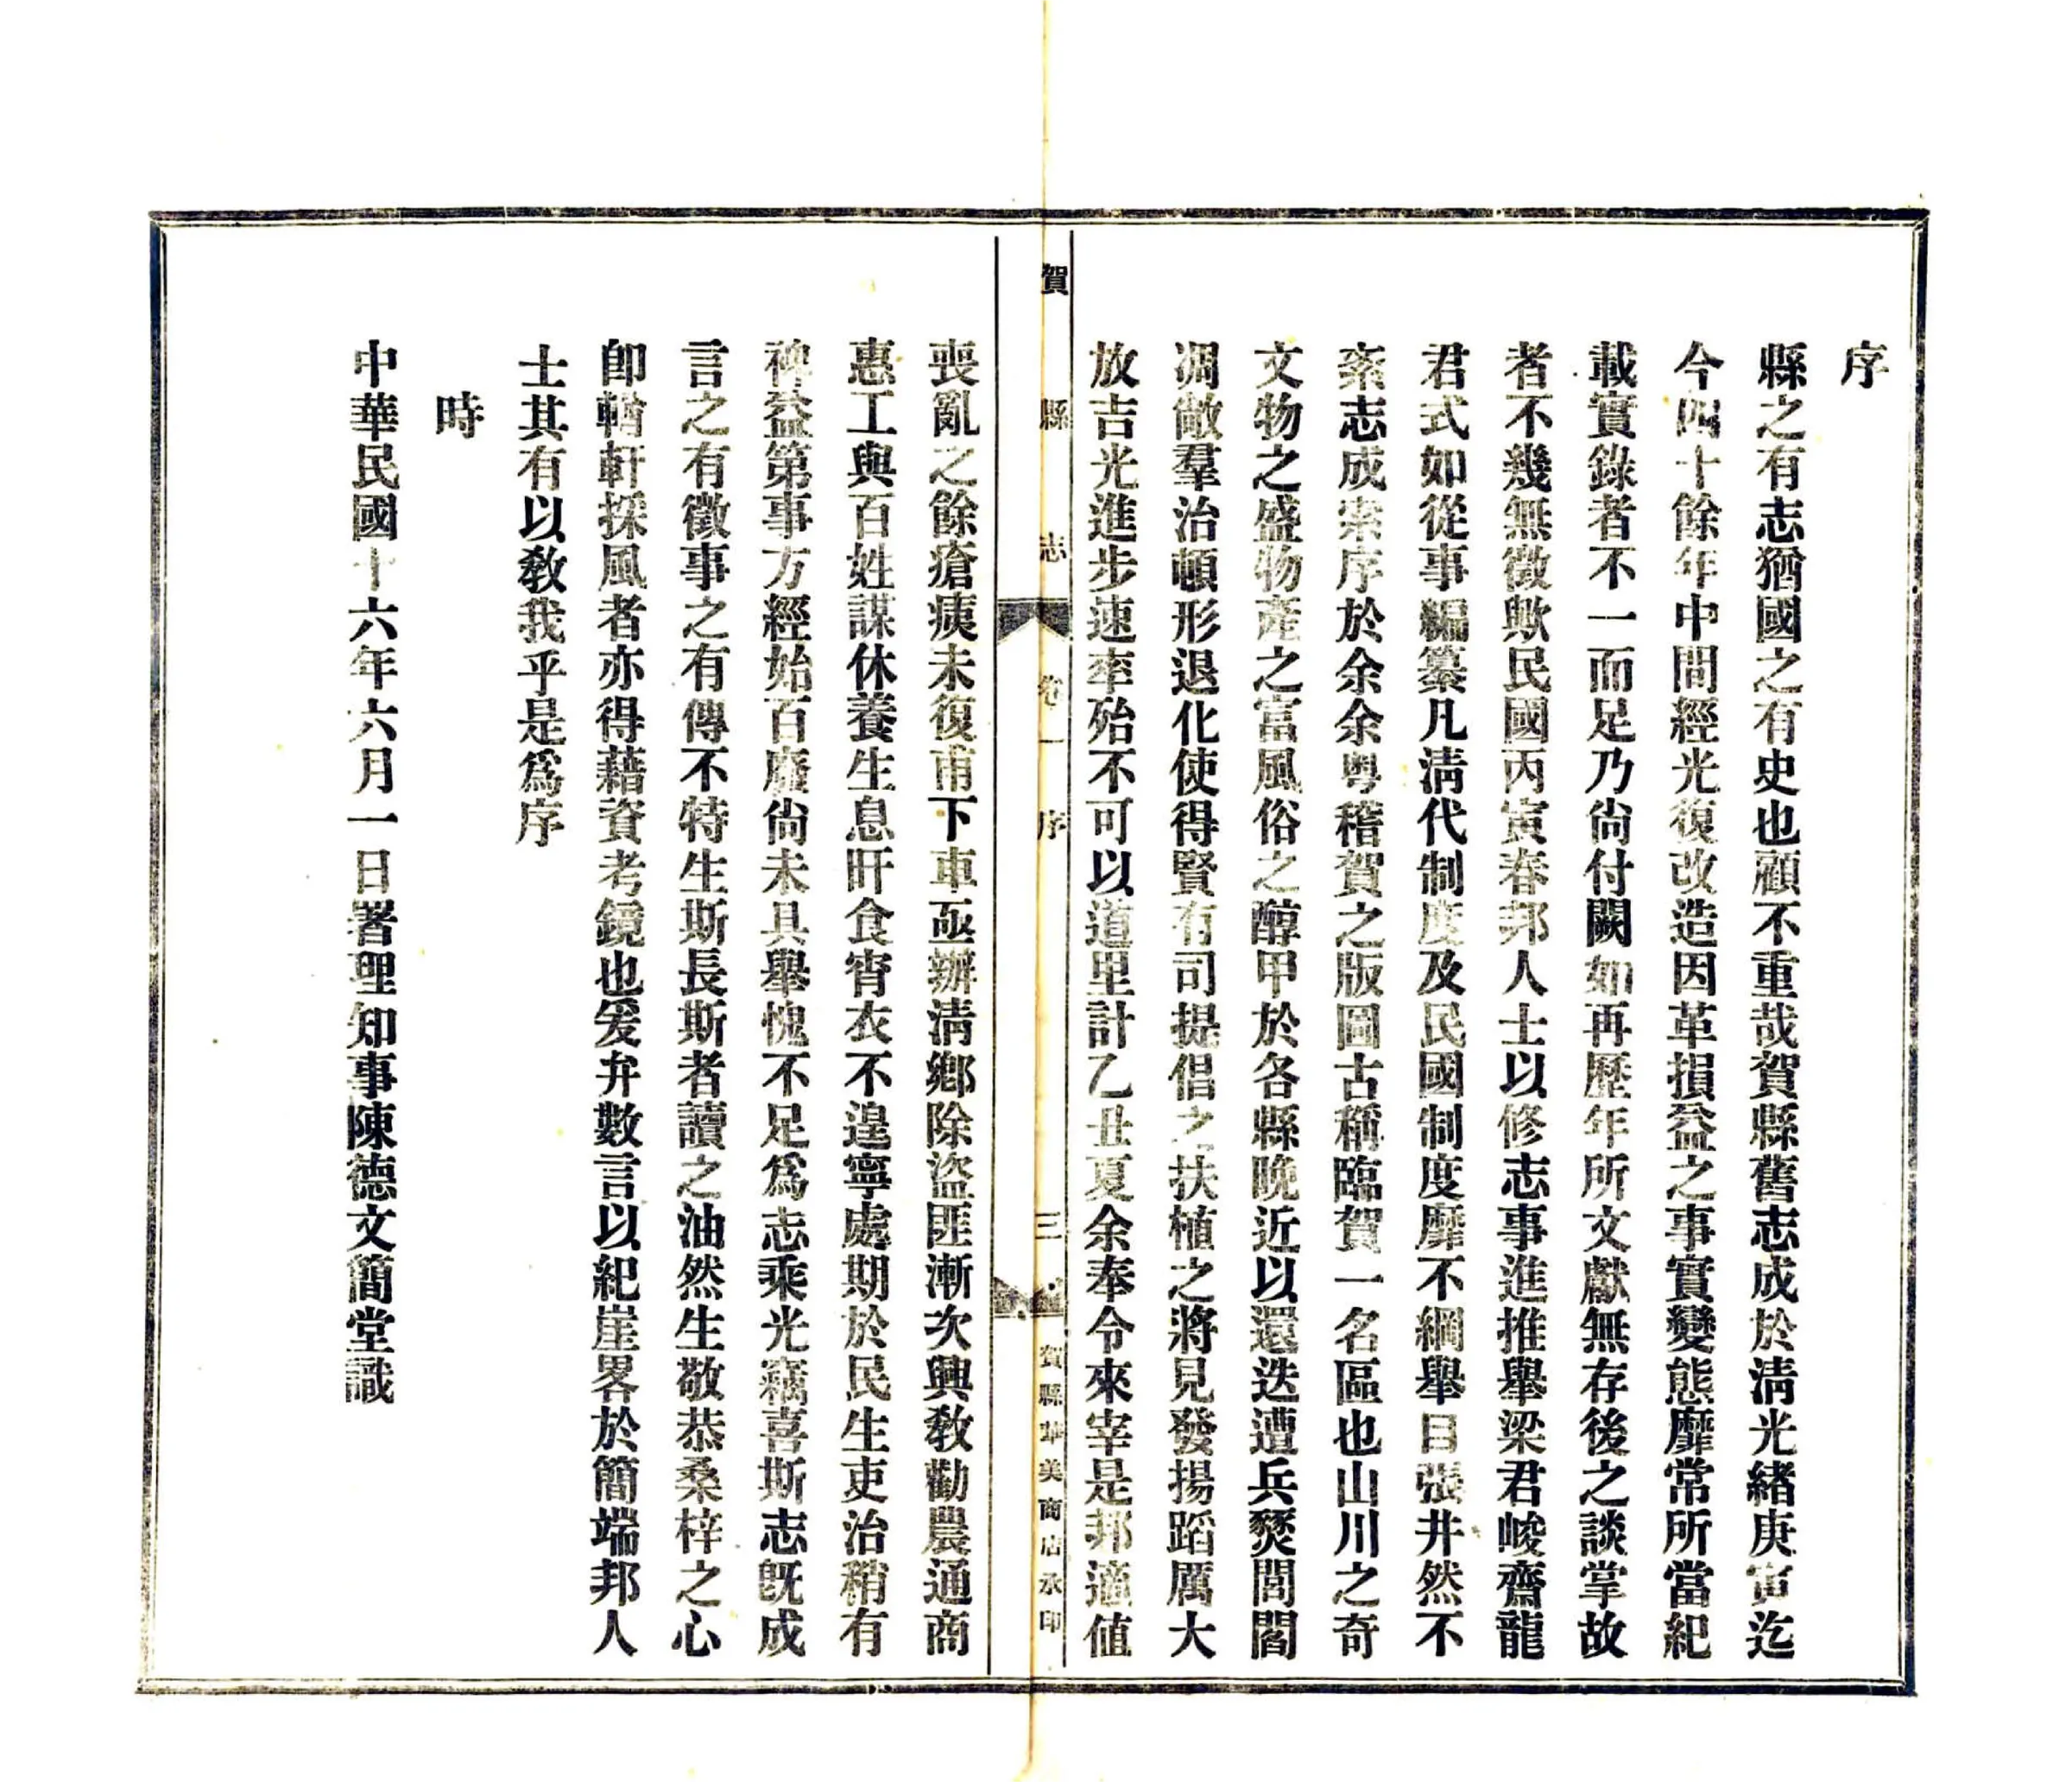 序
縣之有志猶國之有史也顧不重哉賀縣舊志成於淸光緖庚寅迄
今四十餘年中間經光復改造因革損益之事實變態靡常所當紀
載實錄者不一而足乃尙付闕如再歷年所文獻無存後之談掌故
者不幾無徵歟民國丙寅春邦人士以修志事進推舉梁君峻齋龍
君式如從事編纂凡淸代制度及民國制度靡不綱舉目張井然不
紊志成索序於余余粤稽賀之版圖古稱臨賀一名區也山川之奇
文物之盛物產之富風俗之醇甲於各縣晚近以還迭遭兵燹閭閻
凋敝羣治頓形退化使得賢有司提倡之扶植之將見發揚蹈厲大
放吉光進步速率殆不可以道里計乙丑夏余奉令來宰是邦適值
賀縣志 卷一 序 三 賀縣華美商店承印
喪亂之餘瘡痍未復甫下車亟辦淸鄉除盜匪漸次興敎勸農通商
惠工與百姓謀休養生息旰食宵衣不遑寧處期於民生吏治稍有
裨益第事方經始百廢尙未具舉愧不足爲志乘光竊喜斯志旣成
言之有徵事之有傳不特生斯長斯者讀之油然生敬恭桑梓之心
卽輶軒採風者亦得藉資考鏡也爰弁數言以紀崖畧於簡端邦人
士其有以敎我乎是爲序
時
中華民國十六年六月一日署理知事陳德文簡堂識